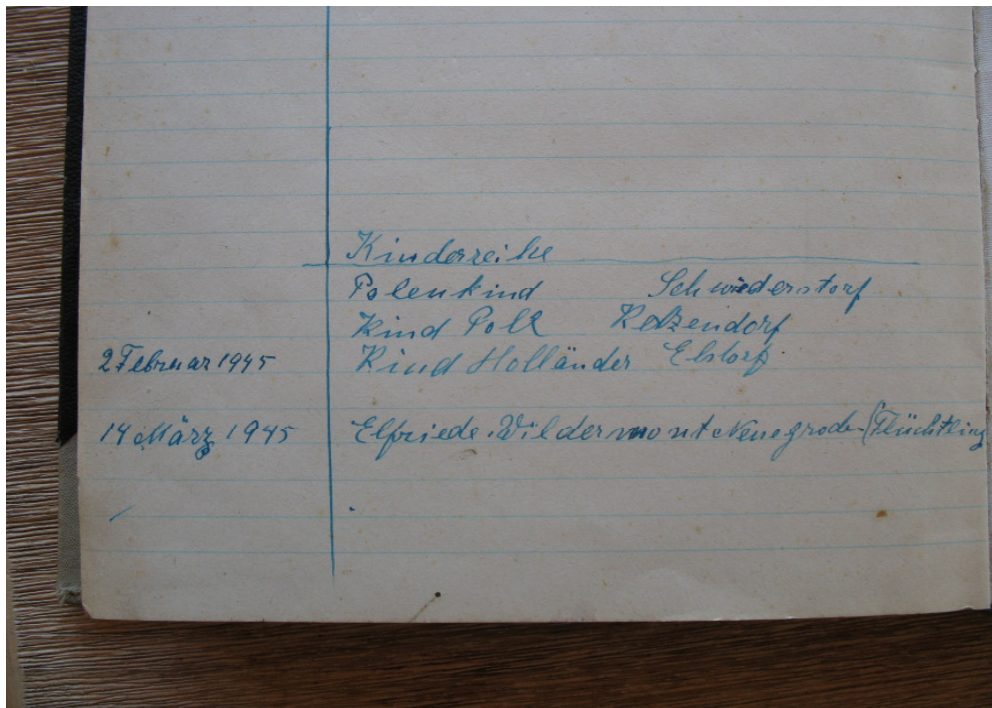 Kinderreihe
Polenkind Schwiederstorf
Kind Pole Ketzendorf
2 Februar 1945 Kind Holländer Elstorf
14 März 1945 Elfriede Wildermont (Flüchtling